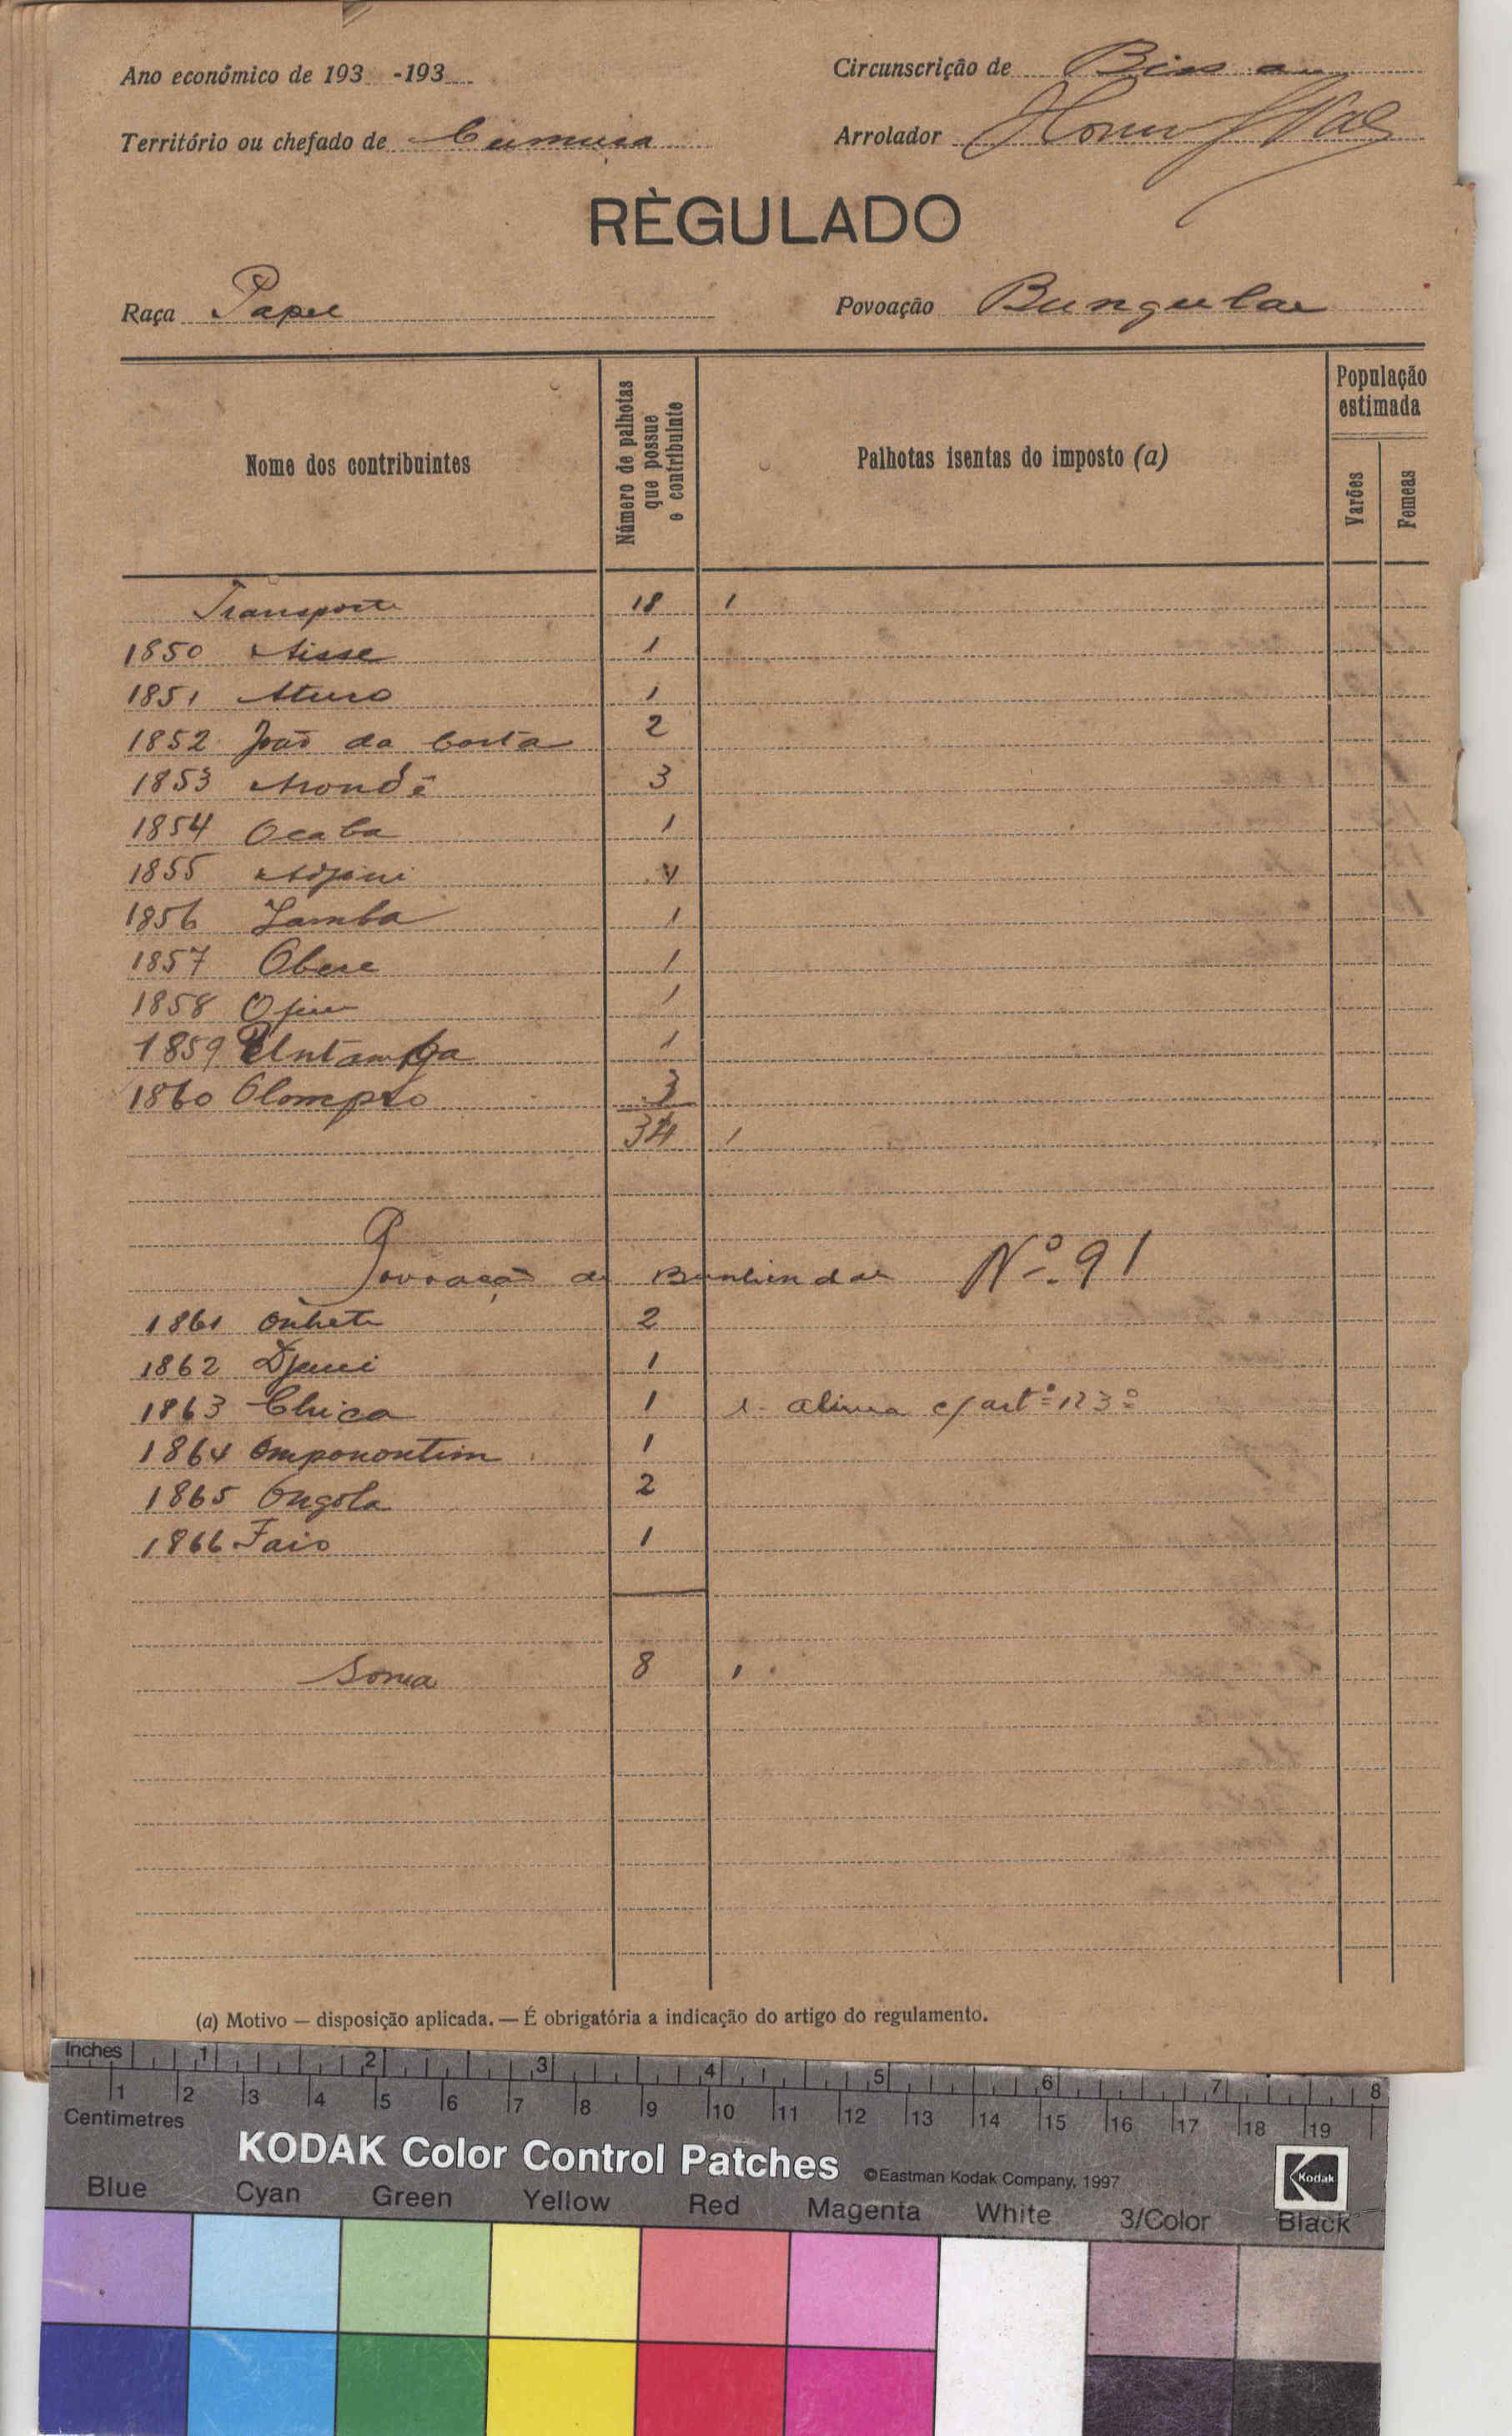 Ano económico de 193 -193
Circunscrição de Bissau
Território ou chefado de Cumura
Arrolador
RÈGULADO
Raça Papel
Povoação Bungular
Nome dos contribuintes
Número de palhotas que possue o contribuinte
Palhotas isentas do imposto (a)
População estimada
Varões
Femeas
Transporte 18 1
1850 Aisse 1
1851 Aturo 1
1852 João da Costa 2
1853 Arondê 3
1854 Ocaba 1
1855
1856 Lamba 1
1857 Obere 1
1858 1
1859 1
1860 Olompro 3
34 1
Povoação de Nº 91
1861 Onhete 2
1862 1
1863 Chica 1 1- alinea c/ artº 123º
1864 Omponontim 1
1865 Ongola 2
1866 Faio 1
Soma 8 1
(a) Motivo — disposição aplicada. — É obrigatória a indicação do artigo do regulamento.
Inches 1 2 3 4 5 6 7 8
1 2 3 4 5 6 7 8 9 10 11 12 13 14 15 16 17 18 19
Centimetres
KODAK Color Control Patches ©Eastman Kodak Company, 1997 Kodak
Blue Cyan Green Yellow Red Magenta White 3/Color Black